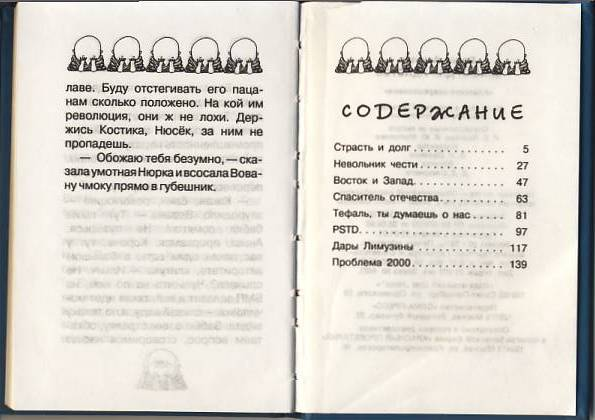 лаве. Буду отстегивать его паца-
нам сколько положено. На кой им
революция, они ж не лохи. Дер-
жись Костика, Нюсёк, за ним не
пропадешь.
— Обожаю тебя безумно, — ска-
зала умотная Нюрка и всосала Вова-
ну чмоку прямо в губешник.
СОДЕРЖАНИЕ
Страсть и долг 5
Невольник чести 27
Восток и Запад 47
Спаситель отечества 63
Тефаль, ты думаешь о нас 81
PSTD 97
Дары Лимузины 117
Проблема 2000 139